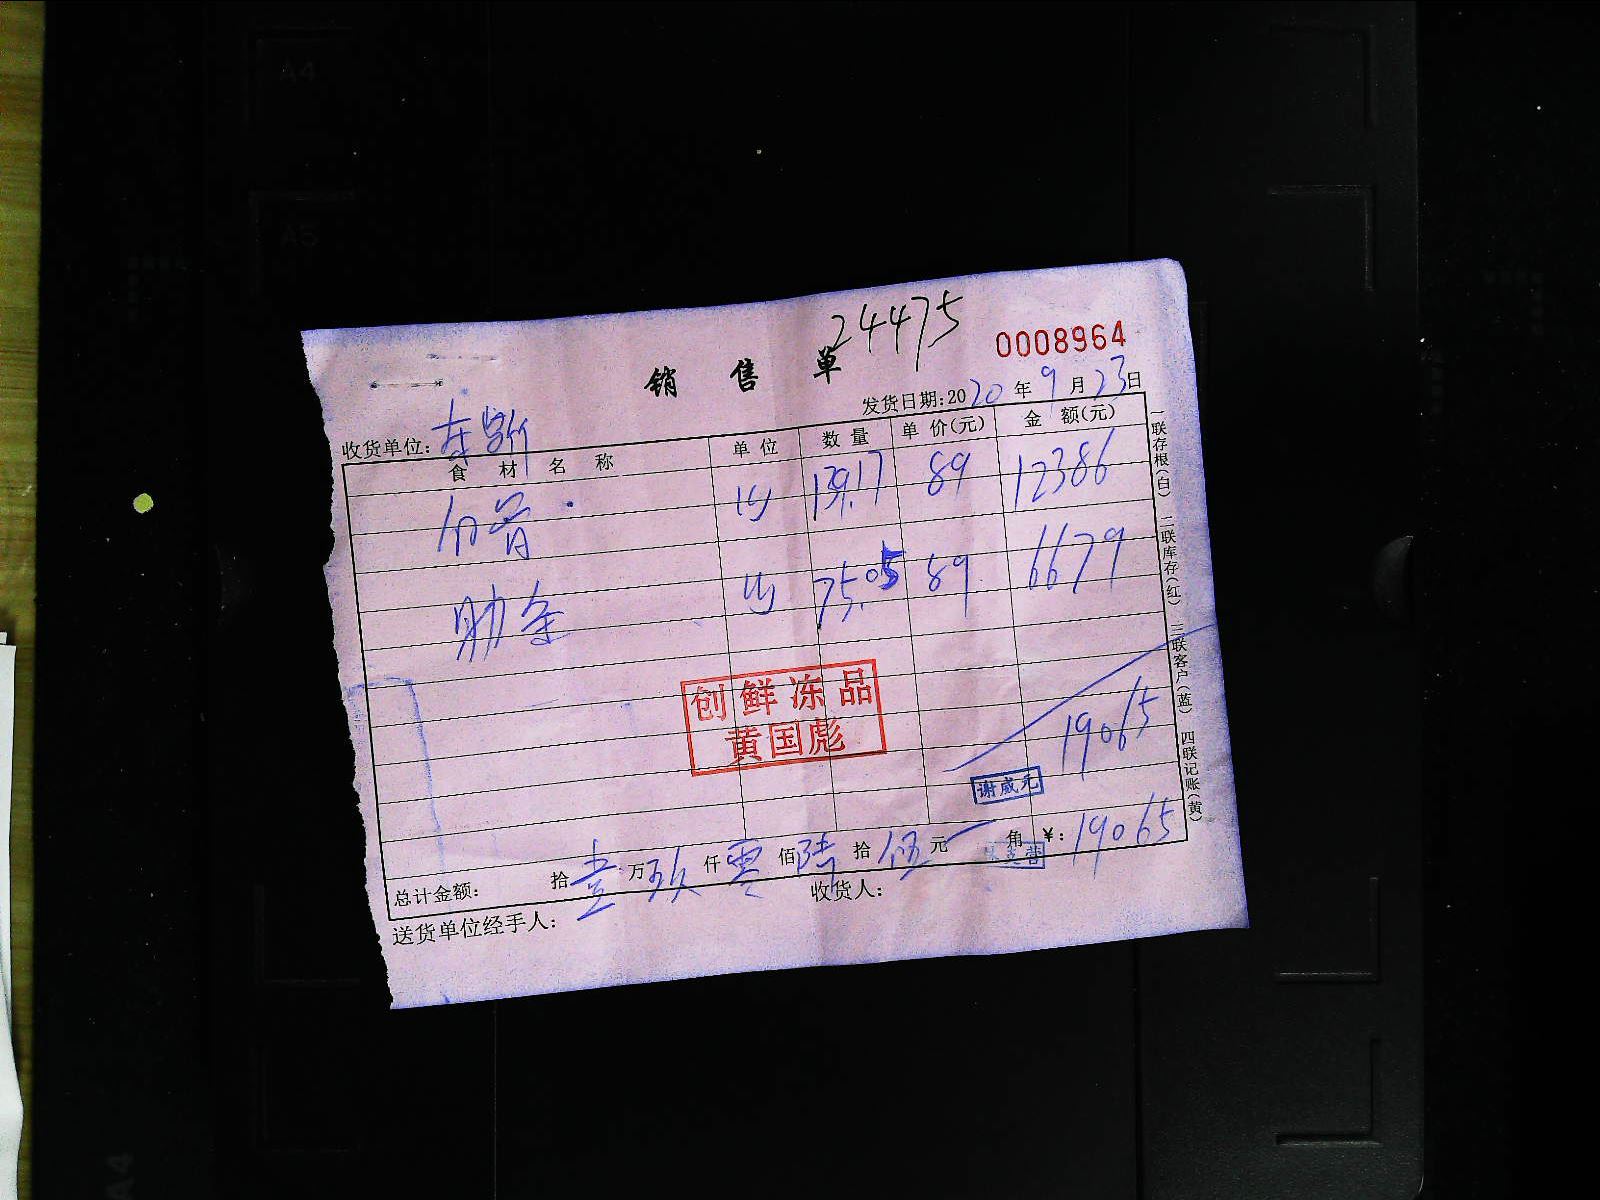 A4
A5
24475
0008964
销售单
发货日期:2020年9月23日
收货单位:
食材名称 单位 数量 单价(元) 金额(元)
139.17 89 12386
肋条 75.05 89 6679
创鲜冻品
黄国彪
19065
谢威元
总计金额: 拾壹万玖仟零佰陆拾伍元 角 ¥:19065
送货单位经手人: 收货人:
一联存根(白) 二联库存(红) 三联客户(蓝) 四联记账(黄)
A4